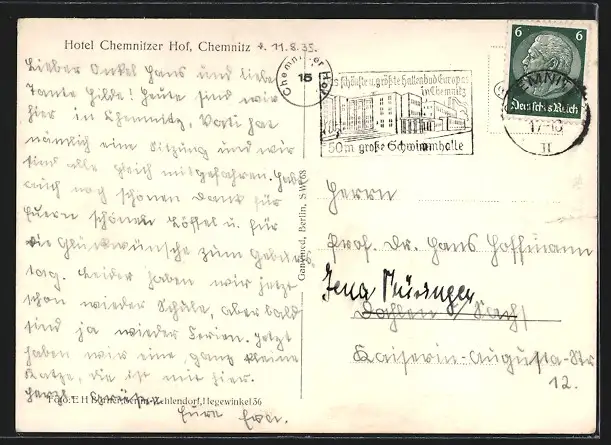 Hotel Chemnitzer Hof, Chemnitz, 11.8.35.
Lieber Onkel Hans und liebe
Tante Hilde! Heute sind wir
hier in Chemnitz, Vati hat
nämlich eine Sitzung und wir
sind alle gleich mitgefahren. Habt
auch noch schönen Dank für
Euern schönen Löffel u. für
die Glückwünsche zum Geburts-
tag. Leider haben wir jetzt
schon wieder Schule, aber bald
sind ja wieder Ferien. Jetzt
haben wir eine ganz kleine
Katze, die ist mit hier.
Herzl.
Eure
Zehlendorf, Hegewinkel 36
Ganymed, Berlin, SW 68
Chemnitzer Hof
15
schönste u. größte Hallenbad Europas
in Chemnitz
50m große Schwimmhalle
6 6
Deutsches Reich
CHEMNITZ
Herrn
Prof. Dr. Hans Hoffmann
Jena Thüringen
Dahlen i/ Sach/
Kaiserin-Augusta-Str.
12.